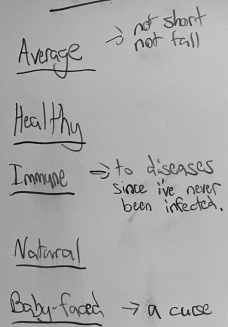 Average → not short
not tall
Healthy
Immune → to diseases
since i've never
been infected.
Natural
Baby-faced → a curse